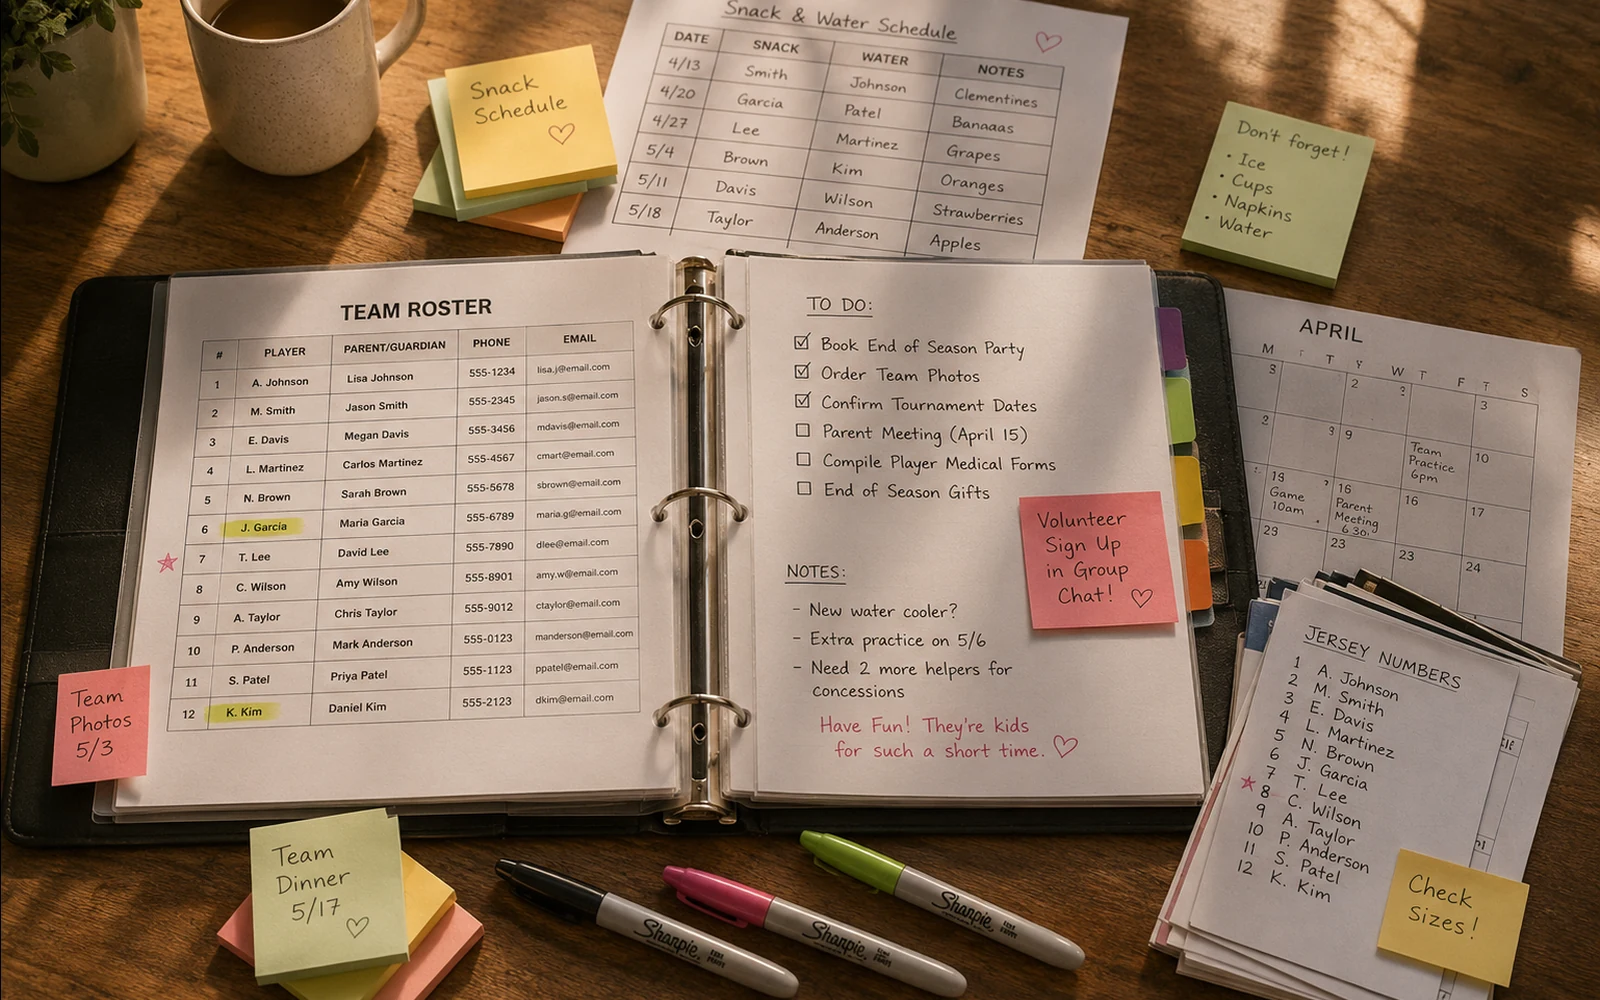 Snack & Water Schedule
DATE SNACK WATER NOTES
4/13 Smith Johnson Clementines
4/20 Garcia Patel Banaaas
4/27 Lee Martinez Grapes
5/4 Brown Kim Oranges
5/11 Davis Wilson Strawberries
5/18 Taylor Anderson Apples
Snack
Schedule
Don't forget!
• Ice
• Cups
• Napkins
• Water
TEAM ROSTER
# PLAYER PARENT/GUARDIAN PHONE EMAIL
1 A. Johnson Lisa Johnson 555-1234 lisa.j@email.com
2 M. Smith Jason Smith 555-2345 jason.s@email.com
3 E. Davis Megan Davis 555-3456 mdavis@email.com
4 L. Martinez Carlos Martinez 555-4567 cmart@email.com
5 N. Brown Sarah Brown 555-5678 sbrown@email.com
6 J. Garcia Maria Garcia 555-6789 maria.g@email.com
7 T. Lee David Lee 555-7890 dlee@email.com
8 C. Wilson Amy Wilson 555-8901 amy.w@email.com
9 A. Taylor Chris Taylor 555-9012 ctaylor@email.com
10 P. Anderson Mark Anderson 555-0123 manderson@email.com
11 S. Patel Priya Patel 555-1123 ppatel@email.com
12 K. Kim Daniel Kim 555-2123 dkim@email.com
Team
Photos
5/3
TO DO:
☑ Book End of Season Party
☑ Order Team Photos
☑ Confirm Tournament Dates
☐ Parent Meeting (April 15)
☐ Compile Player Medical Forms
☐ End of Season Gifts
NOTES:
– New water cooler?
– Extra practice on 5/6
– Need 2 more helpers for
concessions
Have Fun! They're kids
for such a short time.
Volunteer
Sign Up
in Group
Chat!
APRIL
M T T W T F T S
3 2 3
2 9 10
Team
Practice
6pm
Game
10am
16 16 17
Parent
Meeting
23 23 23 24
JERSEY NUMBERS
1 A. Johnson
2 M. Smith
3 E. Davis
4 L. Martinez
5 N. Brown
6 J. Garcia
7 T. Lee
8 C. Wilson
9 A. Taylor
10 P. Anderson
11 S. Patel
12 K. Kim
Check
Sizes!
Team
Dinner
5/17
Sharpie
Sharpie
Sharpie